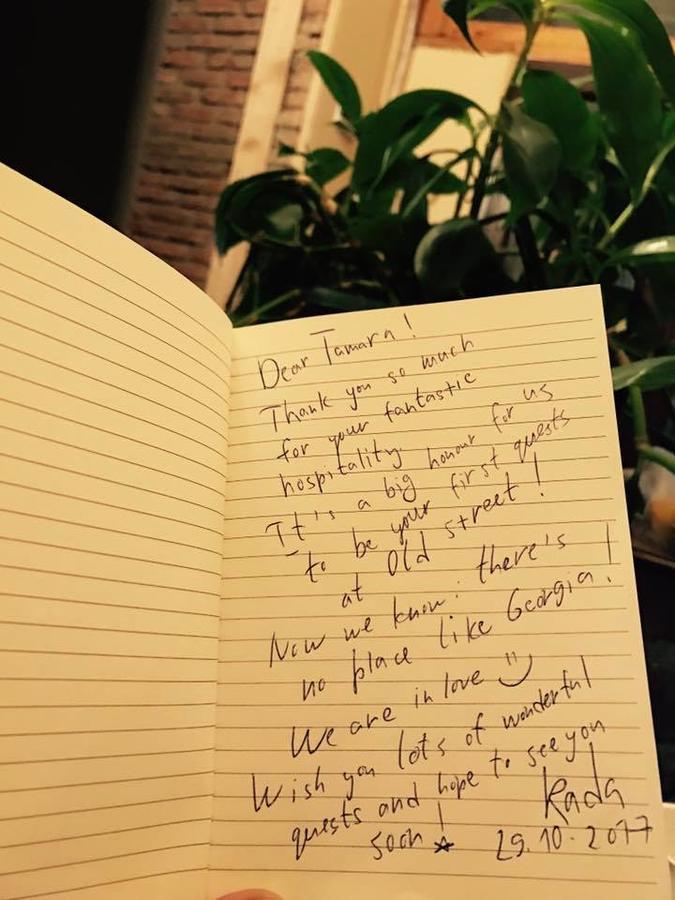 Dear Tamara!
Thank you so much
for your fantastic
hospitality.
It's a big honour for us
to be your first quests
at Old street!
Now we know: there's
no place like Georgia!
We are in love
Wish you lots of wonderful
quests and hope to see you
soon!
Rada
29.10.2017